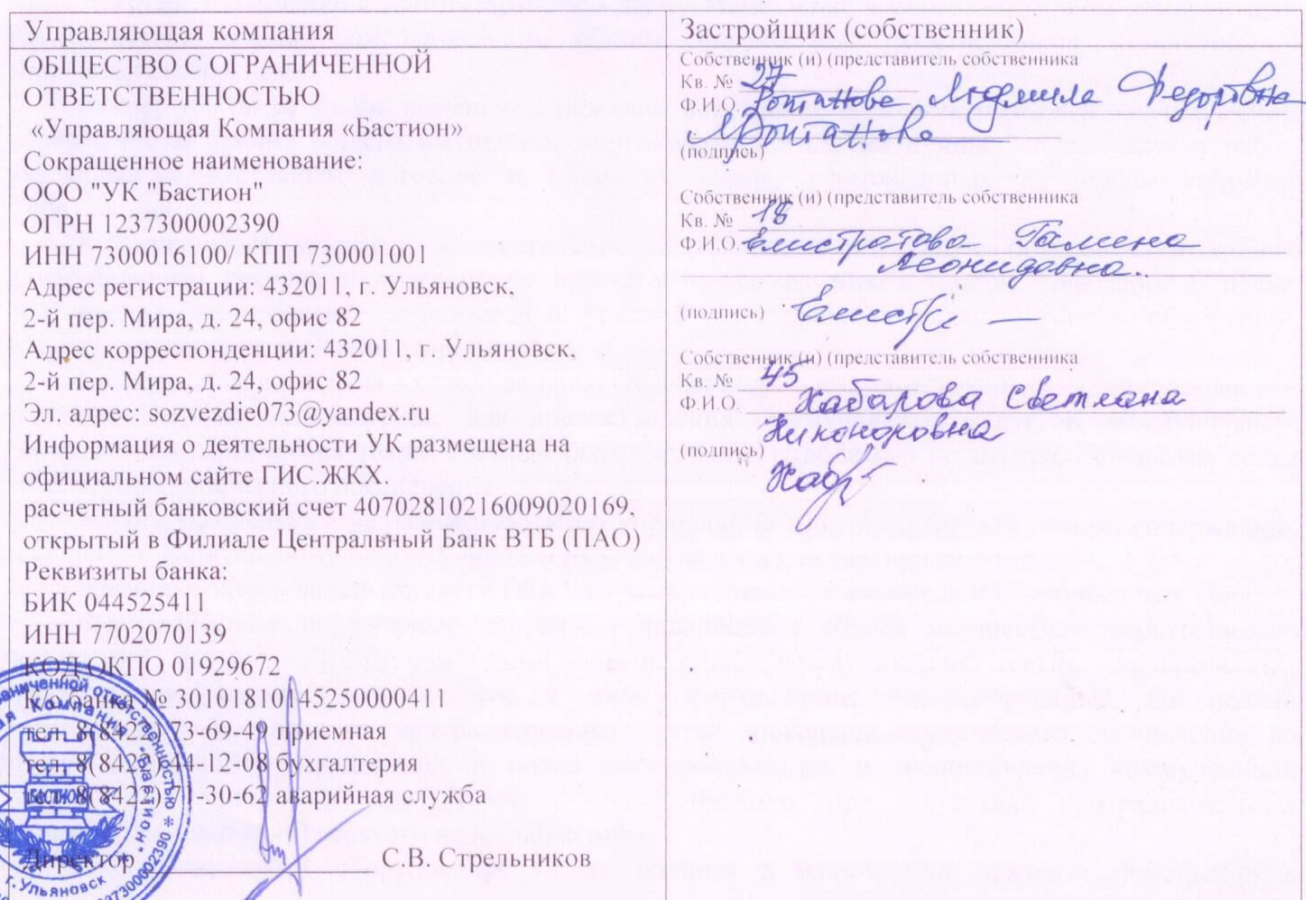 Управляющая компания
ОБЩЕСТВО С ОГРАНИЧЕННОЙ
ОТВЕТСТВЕННОСТЬЮ
«Управляющая Компания «Бастион»
Сокращенное наименование:
ООО "УК "Бастион"
ОГРН 1237300002390
ИНН 7300016100/ КПП 730001001
Адрес регистрации: 432011, г. Ульяновск,
2-й пер. Мира, д. 24, офис 82
Адрес корреспонденции: 432011, г. Ульяновск,
2-й пер. Мира, д. 24, офис 82
Эл. адрес: sozvezdie073@yandex.ru
Информация о деятельности УК размещена на
официальном сайте ГИС.ЖКХ.
расчетный банковский счет 40702810216009020169,
открытый в Филиале Центральный Банк ВТБ (ПАО)
Реквизиты банка:
БИК 044525411
ИНН 7702070139
КОД ОКПО 01929672
К/с банка № 30101810145250000411
тел. 8(8422) 73-69-49 приемная
тел. 8(8422) 44-12-08 бухгалтерия
тел. 8(8422) 71-30-62 аварийная служба
Директор С.В. Стрельников
г. Ульяновск
Застройщик (собственник)
Собственник (и) (представитель собственника
Кв. № 37
Ф.И.О. Людмила Федоровна
(подпись)
Собственник (и) (представитель собственника
Кв. № 18
Ф.И.О. Елистратова Галина
Леонидовна
(подпись)
Собственник (и) (представитель собственника
Кв. № 45
Ф.И.О. Хабарова Светлана
Никоноровна
(подпись)